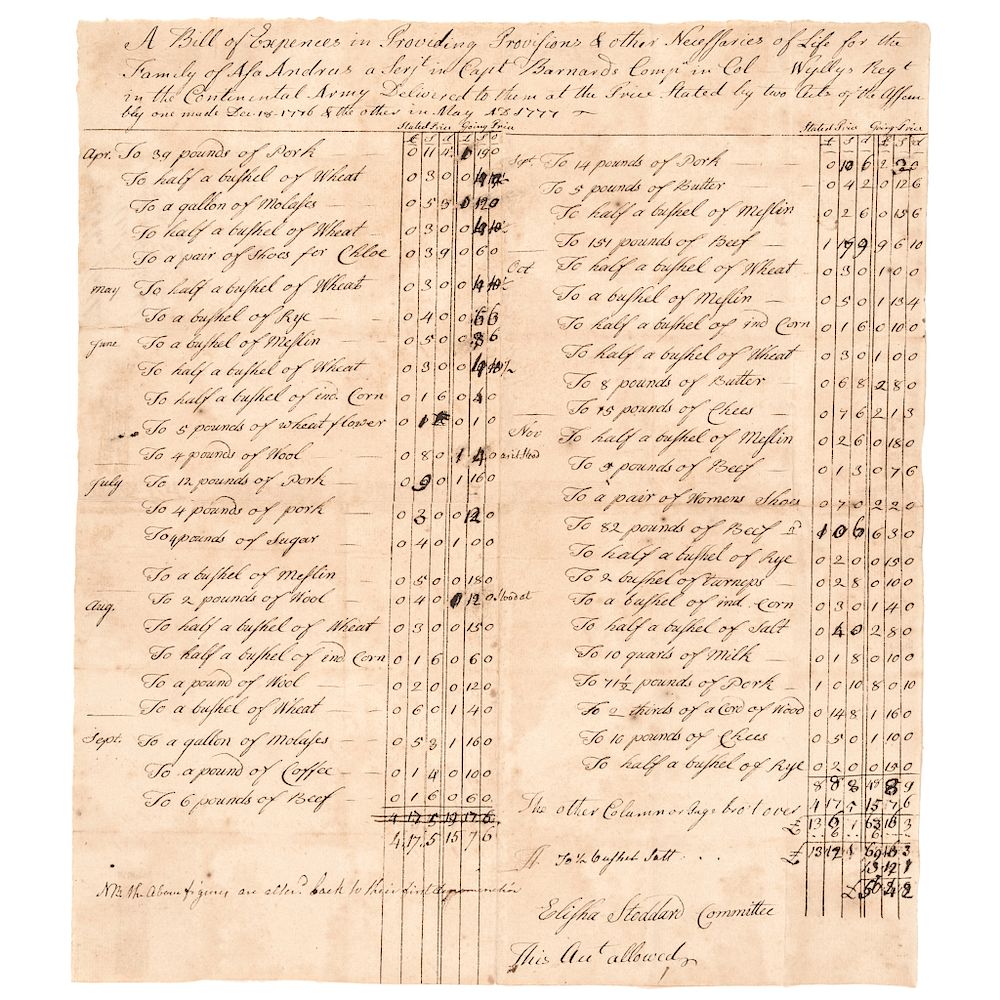 A Bill of Expences in Providing Provisions & other Necessaries of Life for the
Family of Asa Andrus a Serjt in Capt Barnards Compy in Col Wyllys Regt
in the Continental Army Delivered to them at the Price Stated by two Acts of the Assem
bly one made Dec. 18-1776 & the other in May AD 1777
Stated Price Going Price
£ s d £ s d
Apr. To 39 pounds of Pork 0 11 0 19 0
To half a bushel of Wheat 0 3 0 0
To a gallon of Molases 0 5 3 0 12 0
To half a bushel of Wheat 0 3 0 0
To a pair of Shoes for Chloe 0 3 9 0 6 0
May To half a bushel of Wheat 0 3 0 0
To a bushel of Rye 0 4 0 0 6 3
June To a bushel of Meslin 0 5 0 0 8 6
To half a bushel of Wheat 0 3 0 0
To half a bushel of ind. Corn 0 1 6 0 4 0
To 5 pounds of wheat flower 0 1 0 1 0
To 4 pounds of Wool 0 8 0 1 4 0
July To 12 pounds of Pork 0 9 0 1 16 0
To 4 pounds of pork 0 3 0 0 12 0
To 4 pounds of Sugar 0 4 0 1 0 0
To a bushel of Meslin 0 5 0 0 18 0
Aug. To 2 pounds of Wool 0 4 0 0 12 0 stood at
To half a bushel of Wheat 0 3 0 0 15 0
To half a bushel of ind Corn 0 1 6 0 6 0
To a pound of Wool 0 2 0 0 12 0
To a bushel of Wheat 0 6 0 1 4 0
Sept. To a gallon of Molases 0 5 3 1 16 0
To a pound of Coffee 0 1 4 0 10 0
To 6 pounds of Beef 0 1 6 0 6 0
4 17 5 19 17 6
4 17 5 15 7 6
NB. the Above figures are alterd. back to their first
Stated Price Going Price
£ s d £ s d
Sept To 14 pounds of Pork 0 10 6 2 2 0
To 5 pounds of Butter 0 4 2 0 12 6
To half a bushel of Meslin 0 2 6 0 15 6
To 151 pounds of Beef 1 17 9 9 6 10
Oct To half a bushel of Wheat 0 3 0 1 0 0
To a bushel of Meslin 0 5 0 1 13 4
To half a bushel of ind Corn 0 1 6 0 10 0
To half a bushel of Wheat 0 3 0 1 0 0
To 8 pounds of Butter 0 6 8 2 8 0
To 15 pounds of Chees 0 7 6 2 1 3
Nov To half a bushel of Meslin 0 2 6 0 18 0
To pounds of Beef 0 1 3 0 7 6
To a pair of Womens Shoes 0 7 0 2 2 0
To 82 pounds of Beef 1 0 6 6 3 0
To half a bushel of Rye 0 2 0 0 15 0
To 2 bushels of turneps 0 2 8 0 10 0
To a bushel of ind. Corn 0 3 0 1 4 0
To half a bushel of Salt 0 4 0 2 8 0
To 10 quarts of Milk 0 1 8 0 10 0
To 71½ pounds of Pork 1 0 10 8 0 10
To 2 thirds of a Cord of Wood 0 14 8 1 16 0
To 10 pounds of Chees 0 5 0 1 10 0
To half a bushel of Rye 0 2 0 0 15 0
8 8 8 48 8 9
The other Column or Page brot over 4 17 5 15 7 6
£ 13 6 1 63 16 3
To ½ bushel Salt
Elisha Stoddard Committee
This Acct allowed